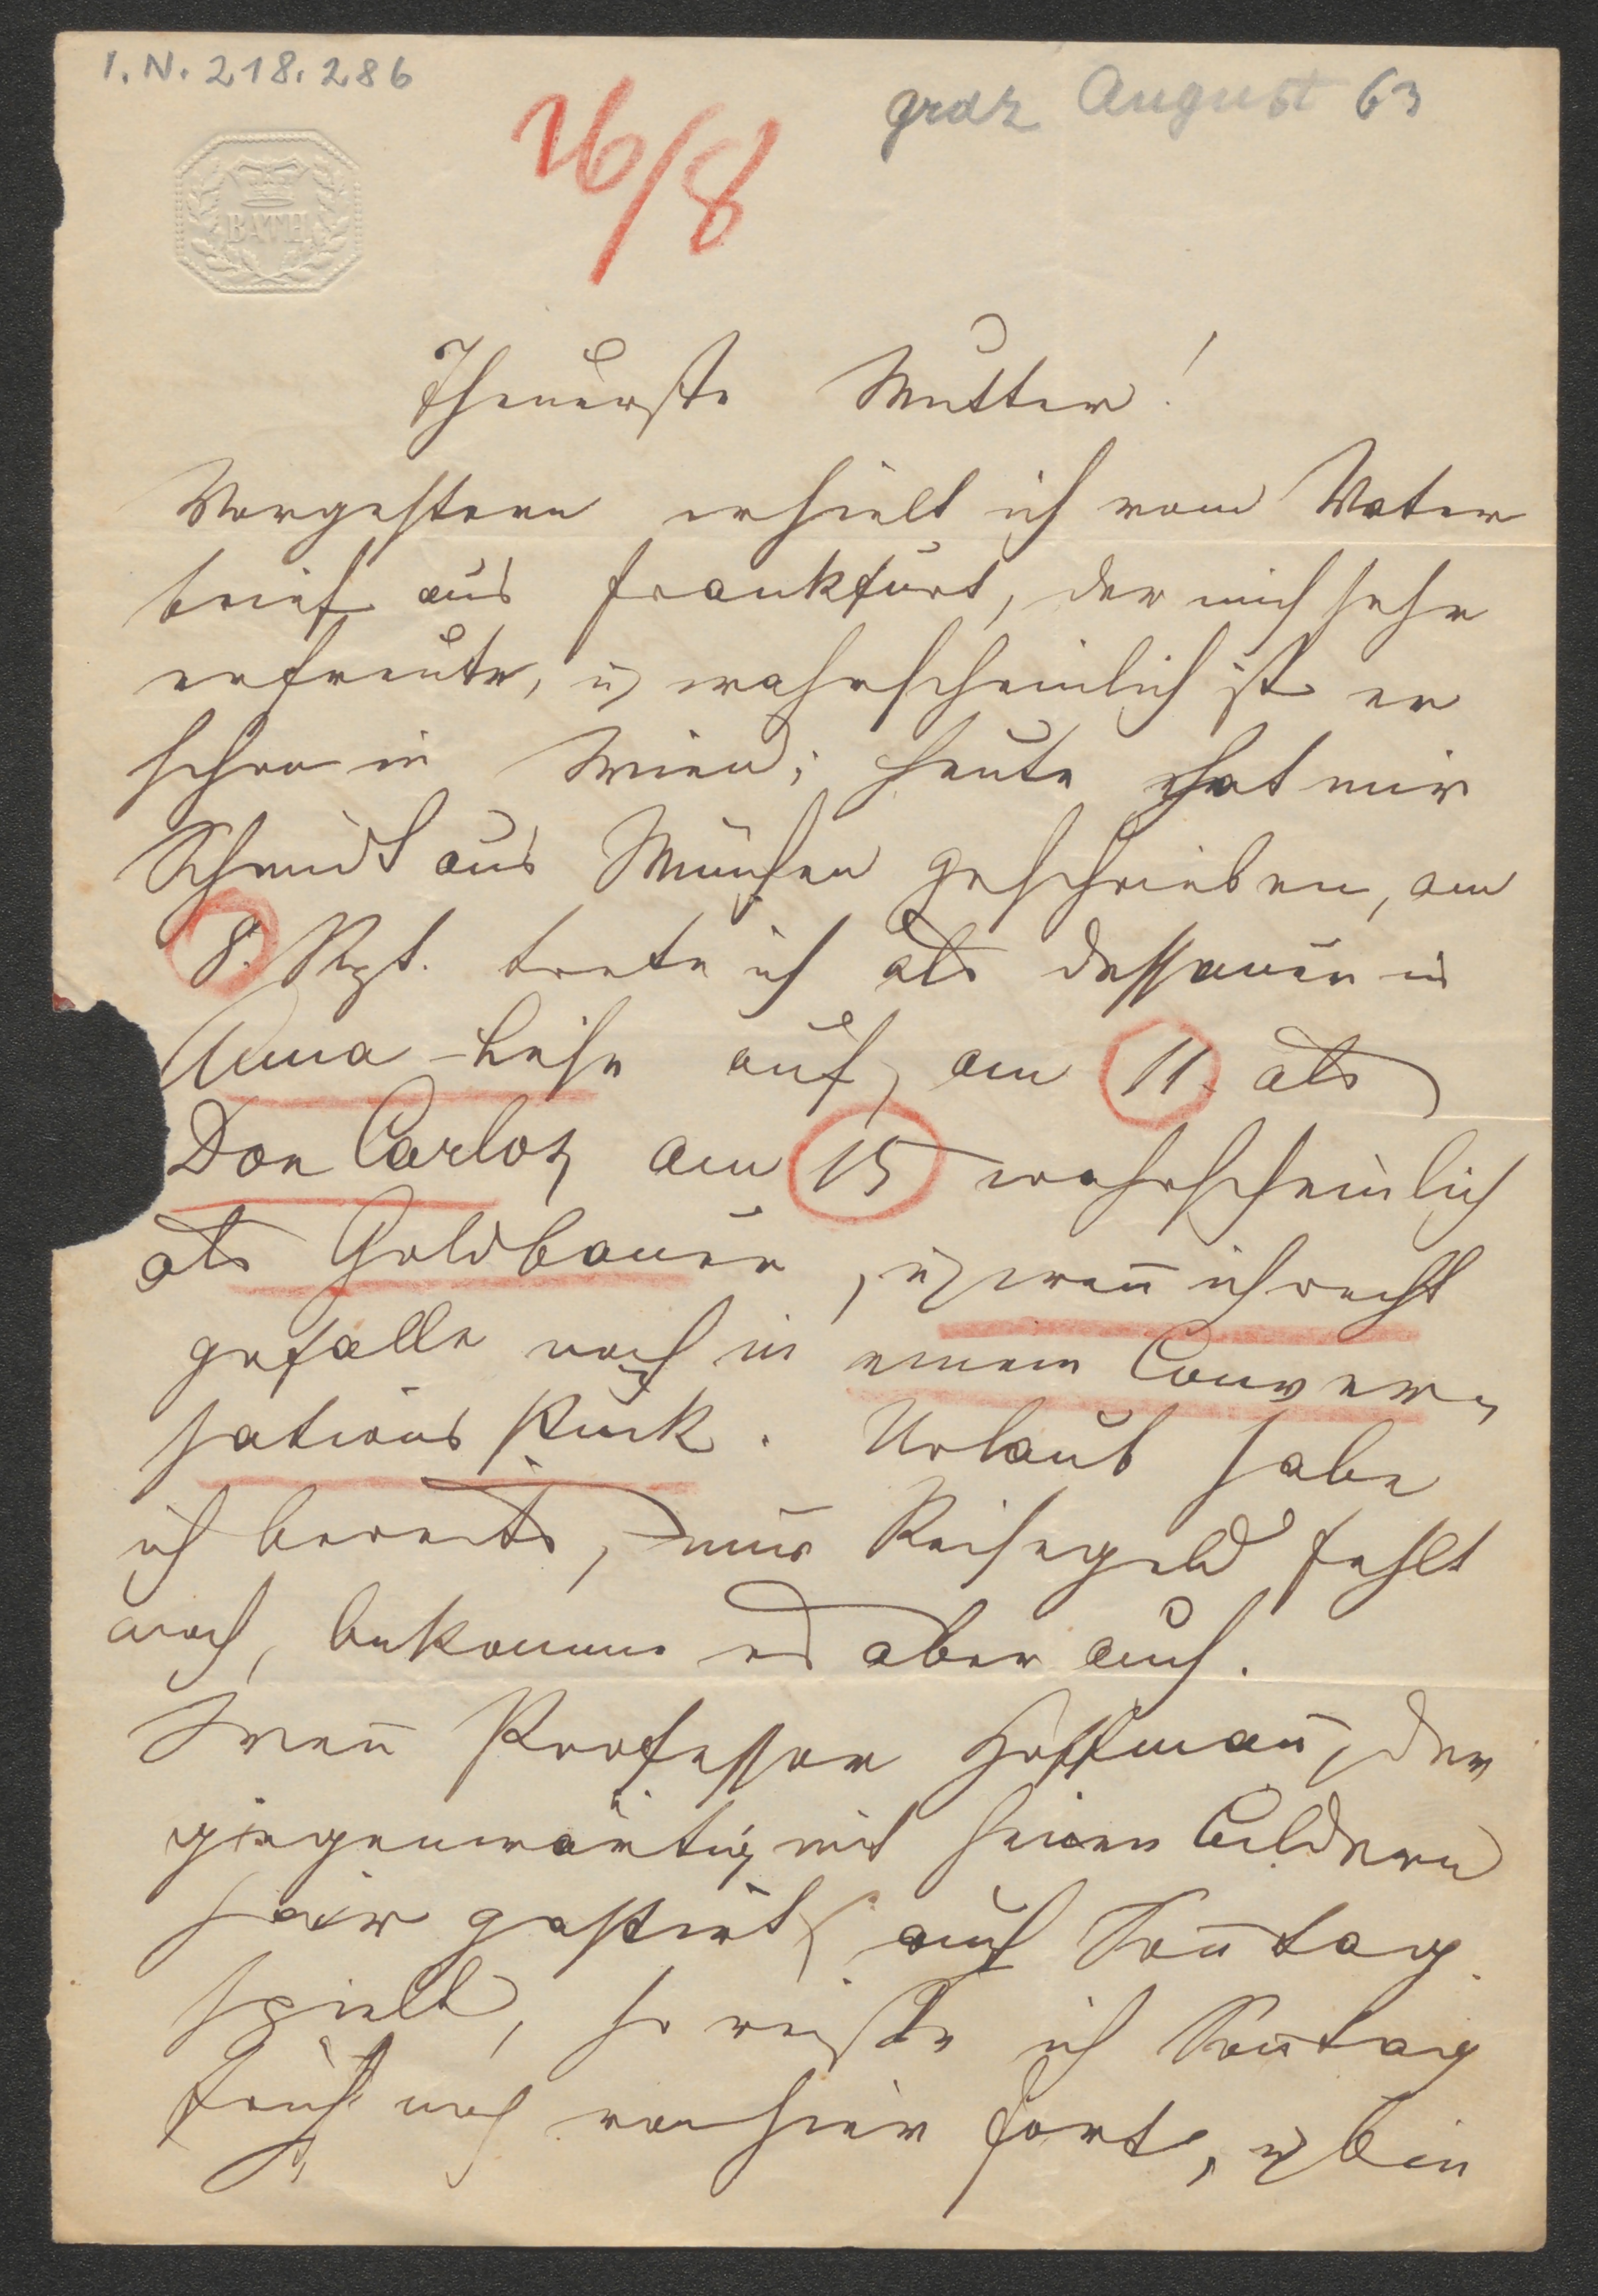 I. N. 218.286
Graz August 63
26/8
BATH
Theuerste Mutter!
Vorgestern erhielt ich vom Vater
brief aus Frankfurt, der mich sehr
erfreute, u wahrscheinlich ist er
schon in Wien; heute hat mir
Schmidt aus München geschrieben, am
8. Spt. trete ich als Dessauer in
Anna-Lise auf, am 11. als
Don Carlos, am 15 wahrscheinlich
als Goldbauer, u wen̄ ich recht
gefalle noch in einem Conver-
sations stück. Urlaub habe
ich bereits, nur Reisegeld fehlt
noch, bekomme es aber auch.
Wen̄ Professor Hoffman̄, der
gegenwärtig mit seinen Bildern
hier gastirt, auch Son̄tag
spielt, so reiste ich Son̄tag
früh noch von hier fort, u bin